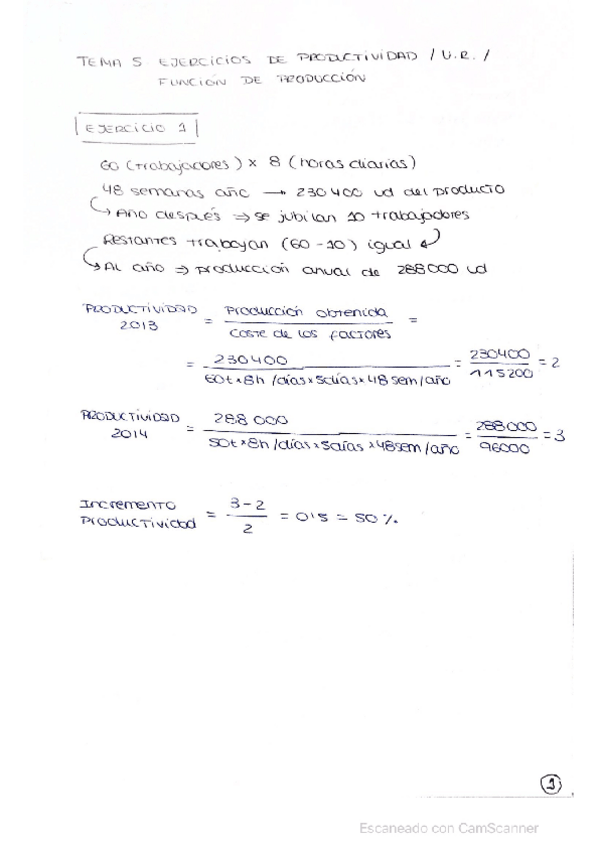 TEMA 5 EJERCICIOS DE PRODUCTIVIDAD / U.R. /
FUNCIÓN DE PRODUCCIÓN
EJERCICIO 1
60 (trabajadores) x 8 (horas diarias)
48 semanas año → 230400 ud del producto
↳ Año después ⇒ se jubilan 10 trabajadores
Restantes trabajan (60-10) igual
↳ AL año ⇒ producción anual de 288000 ud
PRODUCTIVIDAD 2013 = Producción obtenida / coste de los factores =
= 230400 / 60t x 8h/días x 5días x 48 sem/año = 230400 / 115200 = 2
PRODUCTIVIDAD 2014 = 288 000 / 50t x 8h/días x 5días x 48sem/año = 288000 / 96000 = 3
Incremento Productividad = 3-2 / 2 = 0'5 = 50 %.
1
Escaneado con CamScanner